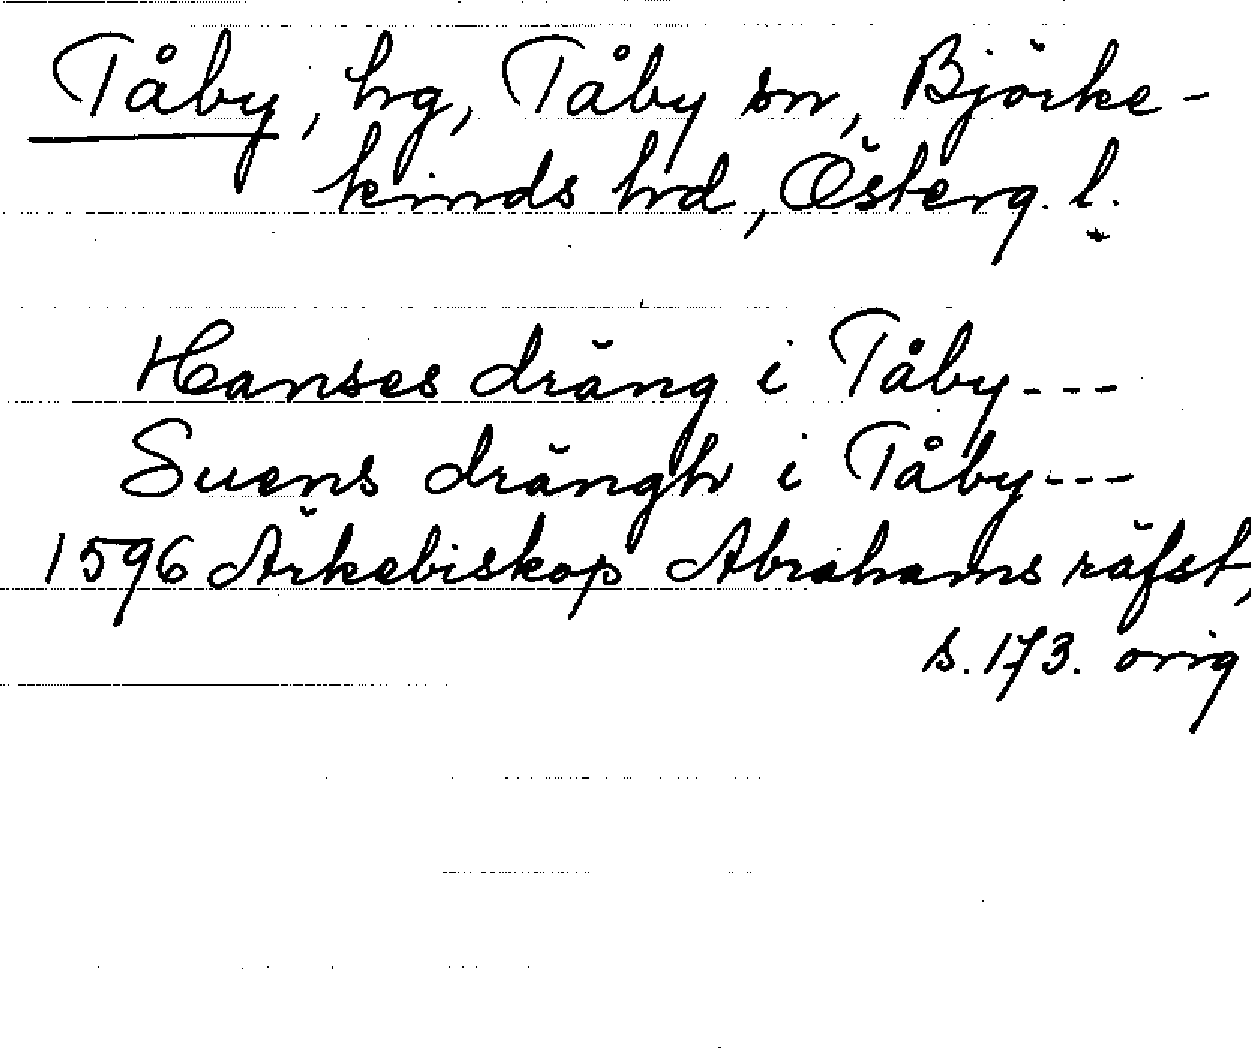 Tåby, hg, Tåby sn, Björke-
kinds hd, Österg. l.
Hanses dräng i Tåby---
Suens drängh i Tåby---
1596 Ärkebiskop Abrahams räfst,
s. 173. orig